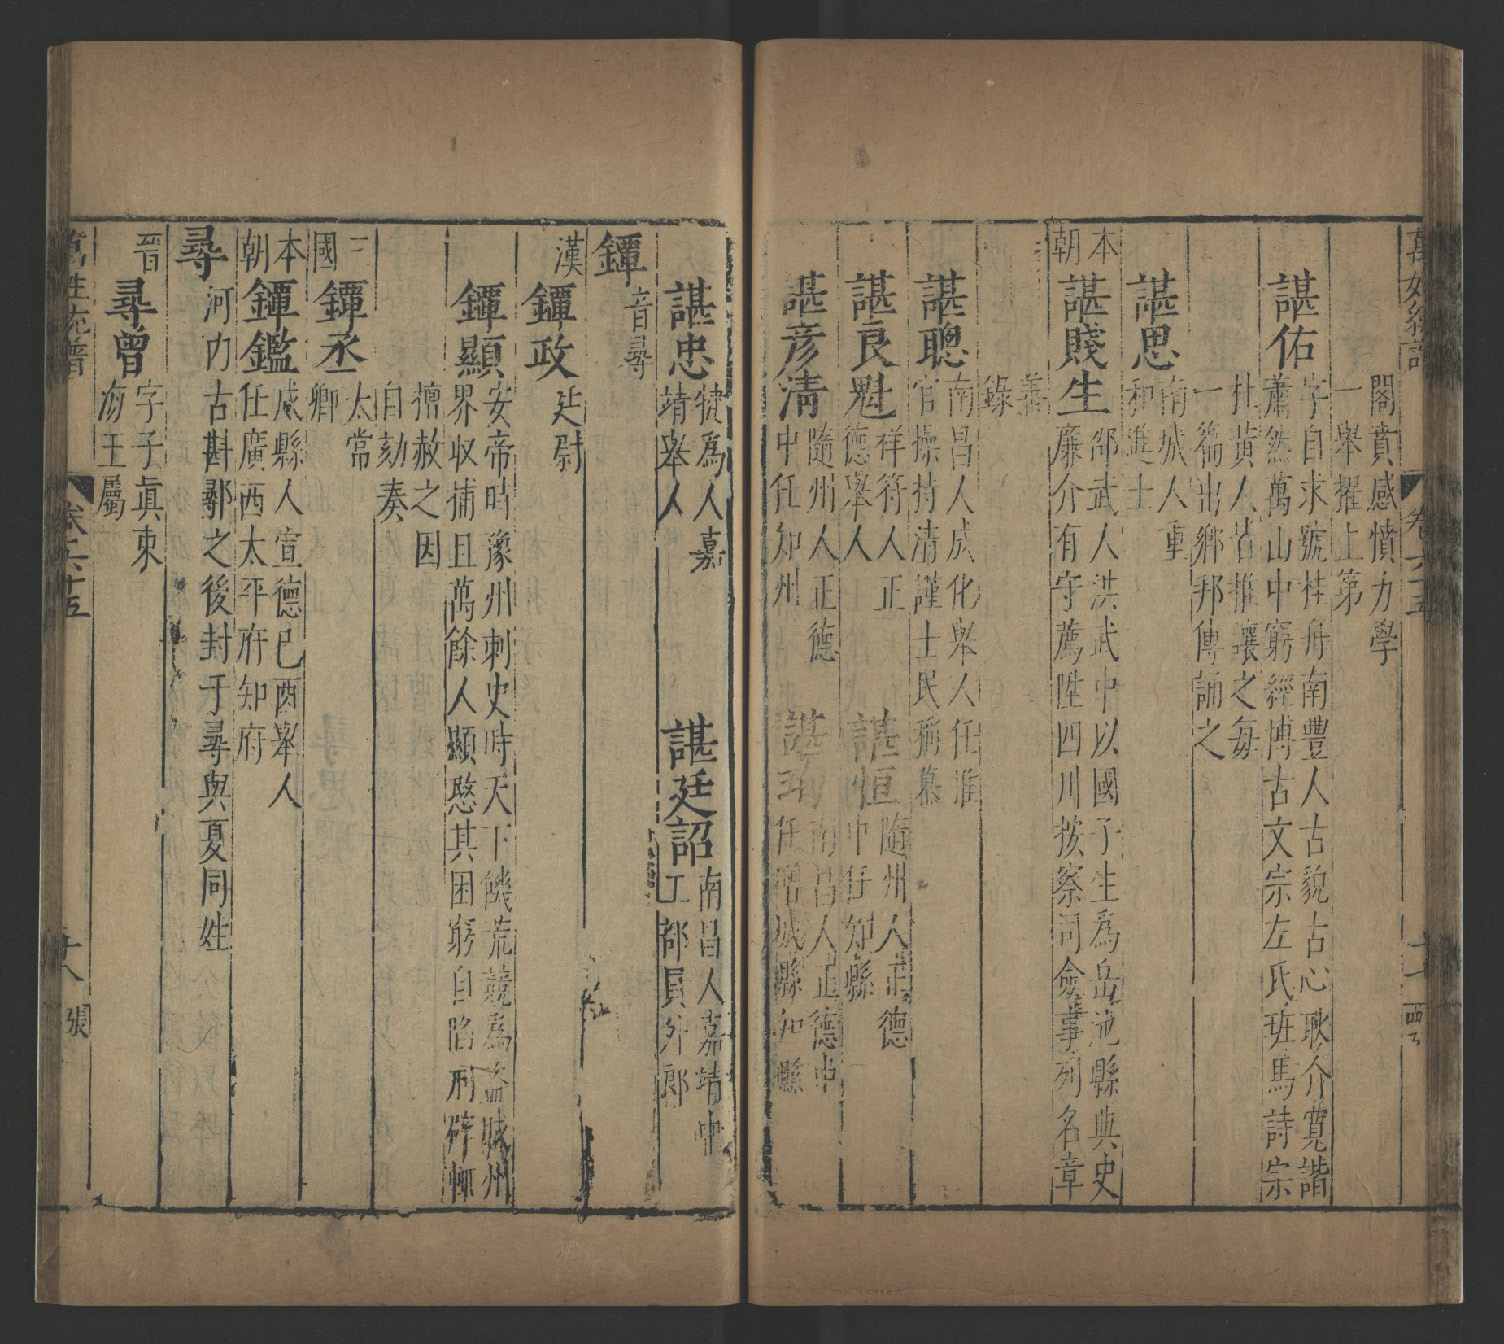 萬姓統譜
卷六十五
閣賁感憤力學
一舉擢上第
諶佑
字自求號桂舟南豐人古貌古心耿介寬諧
蕭然萬山中窮經博古文宗左氏班馬詩宗
杜黃人皆推讓之每
一篇出鄉邦傳誦之
諶思
南城人重
和進士
本朝
諶賤生
邵武人洪武中以國子生為岳池縣典史
廉介有守薦陞四川按察司僉事列名章
善
錄
諶聰
南昌人成化舉人任淮
官操持清謹士民稱慕
諶良魁
祥符人正
德舉人
諶恒
隨州人正德
中任知縣
諶彦清
隨州人正德
中任知州
諶珣
南昌人正德中
任增城縣知縣
諶忠
犍為人嘉
靖舉人
諶廷詔
南昌人嘉靖中
工部員外郎
鐔
音尋
漢
鐔政
廷尉
鐔顯
安帝時豫州刺史時天下饑荒競為盜賊州
界収捕且萬餘人顯愍其困窮自陷刑辟輒
擅赦之因
自劾奏
三國
鐔丞
太常
卿
本朝
鐔鑑
咸縣人宣德已酉舉人
任廣西太平府知府
尋
河内古斟鄩之後封于尋與夏同姓
晉
尋曾
字子真東
海王屬
萬姓統譜
卷六十五
十八
張